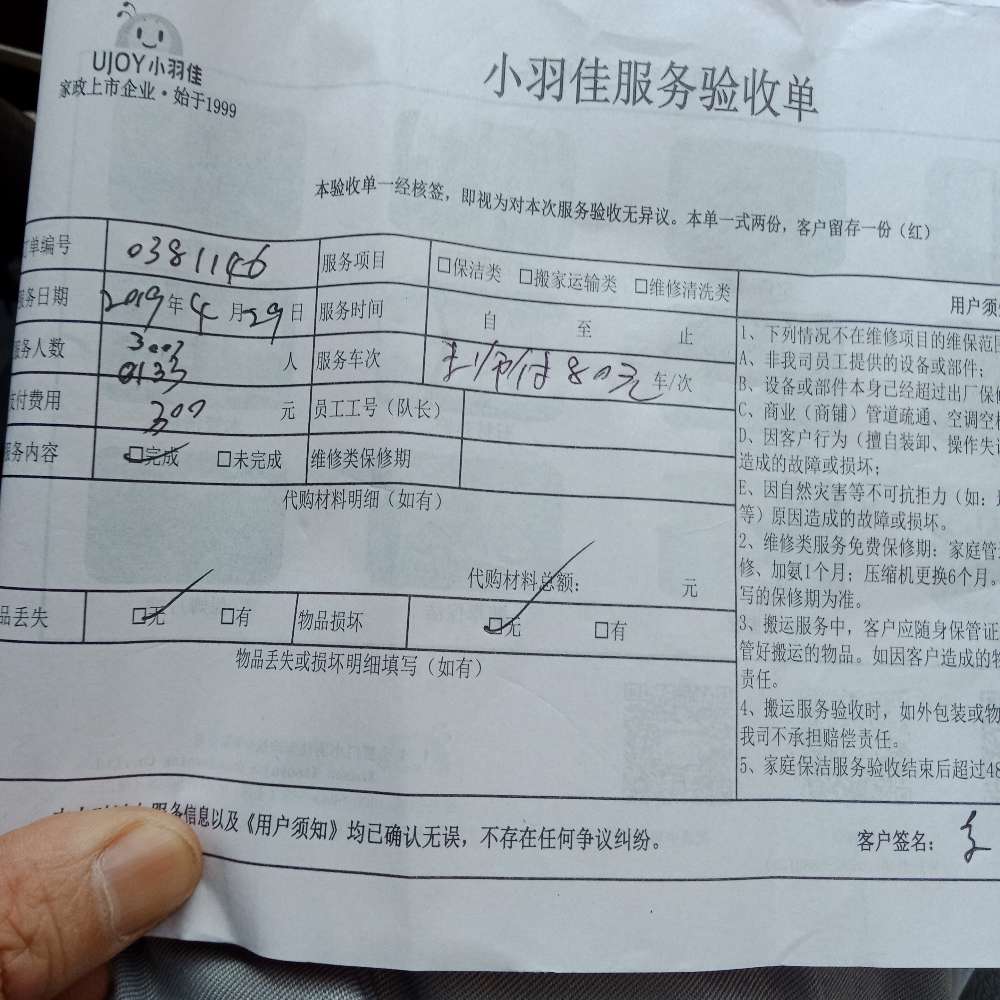 UJOY小羽佳
家政上市企业·始于1999
小羽佳服务验收单
本验收单一经核签，即视为对本次服务验收无异议。本单一式两份，客户留存一份（红）
单编号 0381146 服务项目 □保洁类 □搬家运输类 □维修清洗类
服务日期 2019年4月29日 服务时间 自 至 止
服务人数 3003 0133 人 服务车次 付80元 车/次
付费用 300 元 员工工号（队长）
服务内容 □完成 □未完成 维修类保修期
代购材料明细（如有）
代购材料总额： 元
品丢失 □无 □有 物品损坏 □无 □有
物品丢失或损坏明细填写（如有）
用户须
1、下列情况不在维修项目的维保范
A、非我司员工提供的设备或部件；
B、设备或部件本身已经超过出厂保
C、商业（商铺）管道疏通、空调空
D、因客户行为（擅自装卸、操作失
造成的故障或损坏；
E、因自然灾害等不可抗拒力（如：
等）原因造成的故障或损坏。
2、维修类服务免费保修期：家庭管
修、加氨1个月；压缩机更换6个月。
写的保修期为准。
3、搬运服务中，客户应随身保管证
管好搬运的物品。如因客户造成的物
责任。
4、搬运服务验收时，如外包装或物
我司不承担赔偿责任。
5、家庭保洁服务验收结束后超过48
服务信息以及《用户须知》均已确认无误，不存在任何争议纠纷。
客户签名：